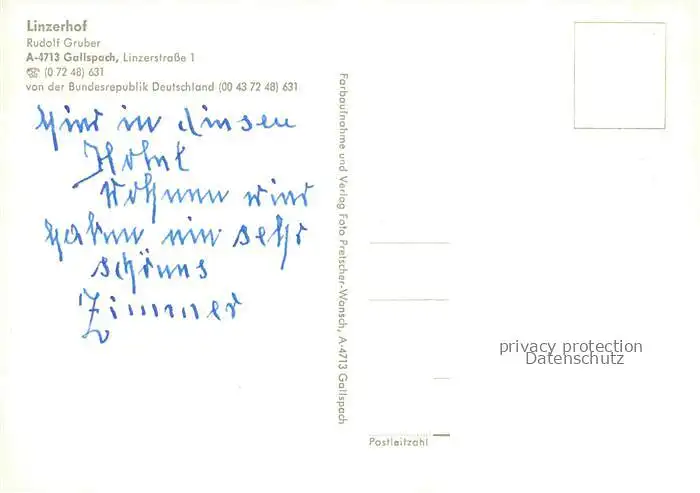 Linzerhof
Rudolf Gruber
A-4713 Gallspach, Linzerstraße 1
☎ (0 72 48) 631
von der Bundesrepublik Deutschland (00 43 72 48) 631
Hier in diesen
Hotel
Wohnen wier
haben ein sehr
schönes
Zimmer
Farbaufnahme und Verlag Foto Pretscher-Wansch, A-4713 Gallspach
privacy protection
Datenschutz
Postleitzahl